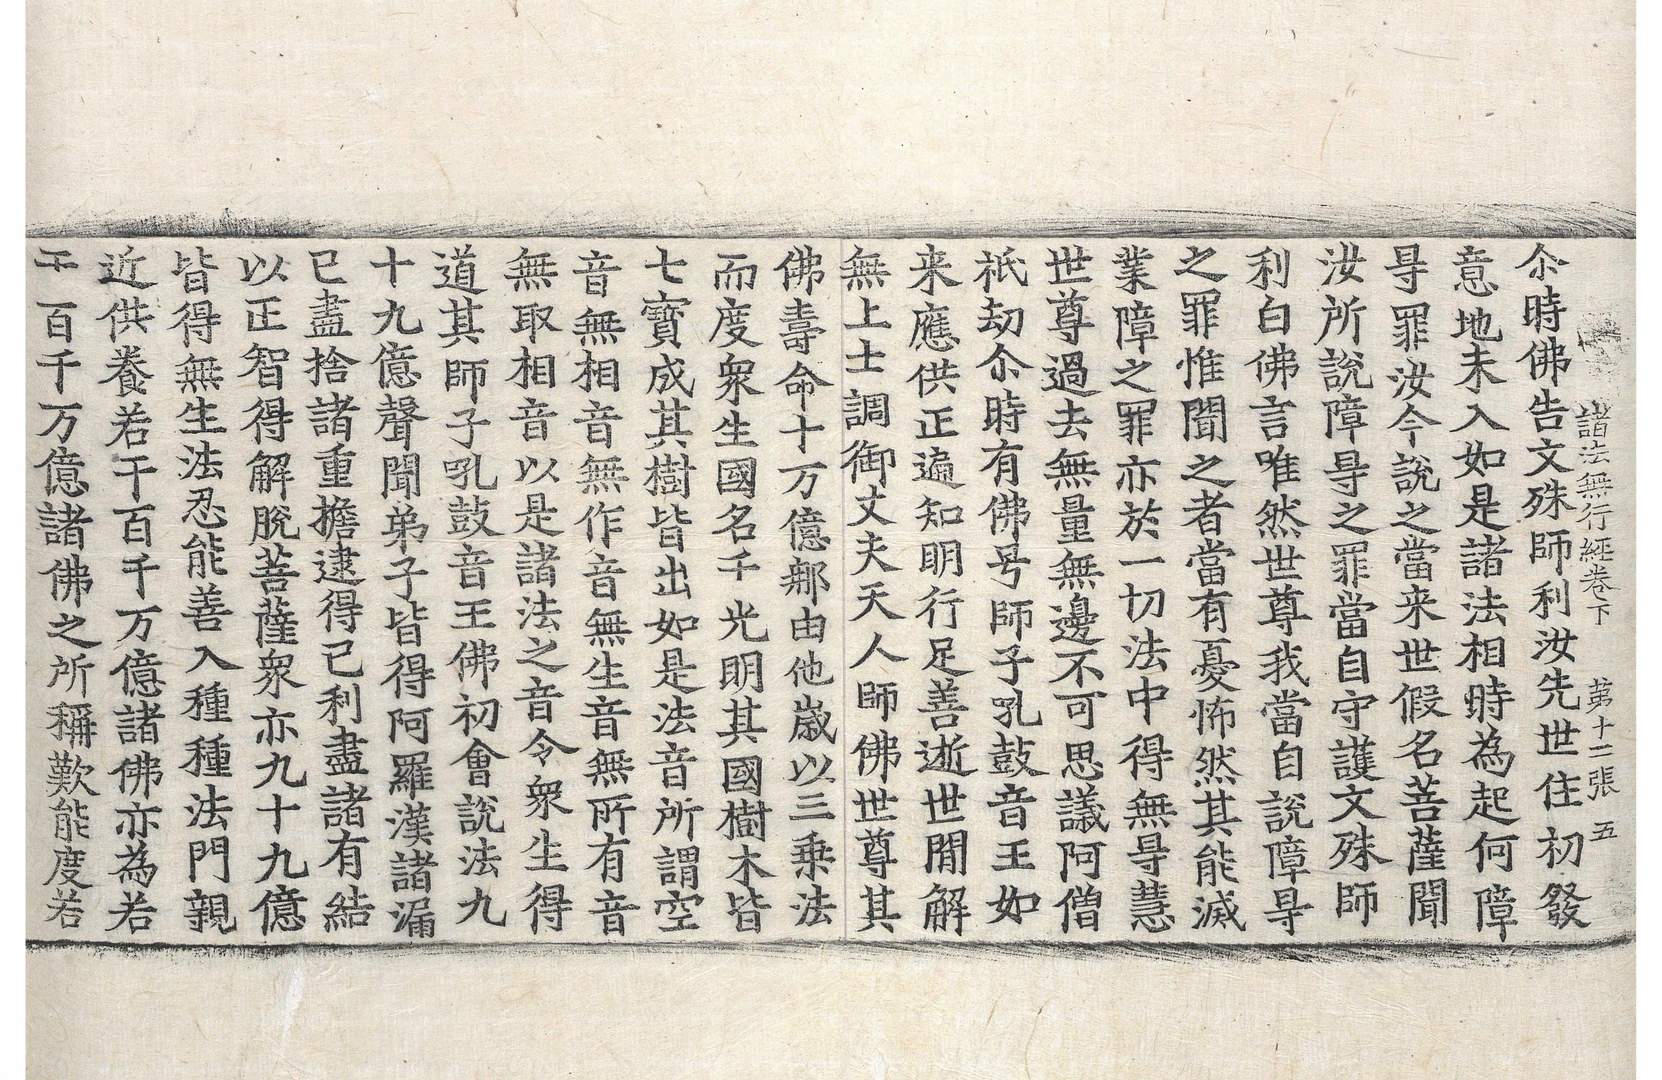 諸法無行經卷下　第十二張　五
尒時佛告文殊師利汝先世住初發
意地未入如是諸法相時為起何障
㝵罪汝今說之當来世假名菩薩聞
汝所說障㝵之罪當自守護文殊師
利白佛言唯然世尊我當自說障㝵
之罪惟聞之者當有憂怖然其能滅
業障之罪亦於一切法中得無㝵慧
世尊過去無量無邊不可思議阿僧
祇劫尒時有佛号師子吼鼓音王如
来應供正遍知明行足善逝世閒解
無上士調御丈夫天人師佛世尊其
佛壽命十万億那由他歲以三乗法
而度衆生國名千光明其國樹木皆
七寶成其樹皆出如是法音所謂空
音無相音無作音無生音無所有音
無取相音以是諸法之音令衆生得
道其師子吼鼓音王佛初會說法九
十九億聲聞弟子皆得阿羅漢諸漏
已盡捨諸重擔逮得已利盡諸有結
以正智得解脫菩薩衆亦九十九億
皆得無生法忍能善入種種法門親
近供養若干百千万億諸佛亦為若
干百千万億諸佛之所稱歎能度若